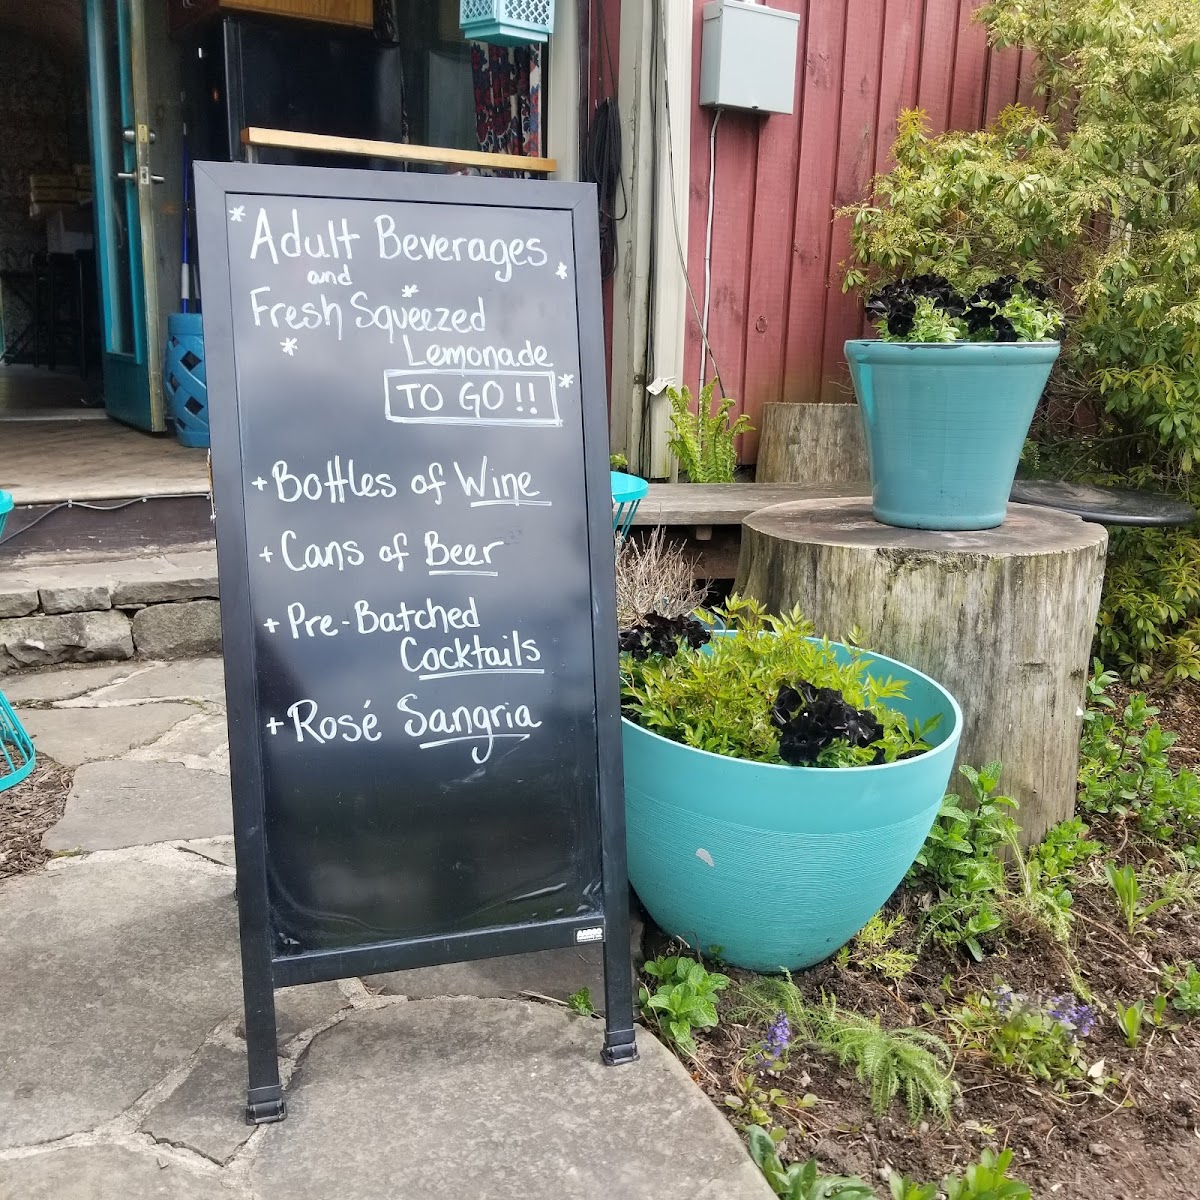 * Adult Beverages *
and
Fresh Squeezed
Lemonade
TO GO!!
+ Bottles of Wine
+ Cans of Beer
+ Pre-Batched
Cocktails
+ Rosé Sangria